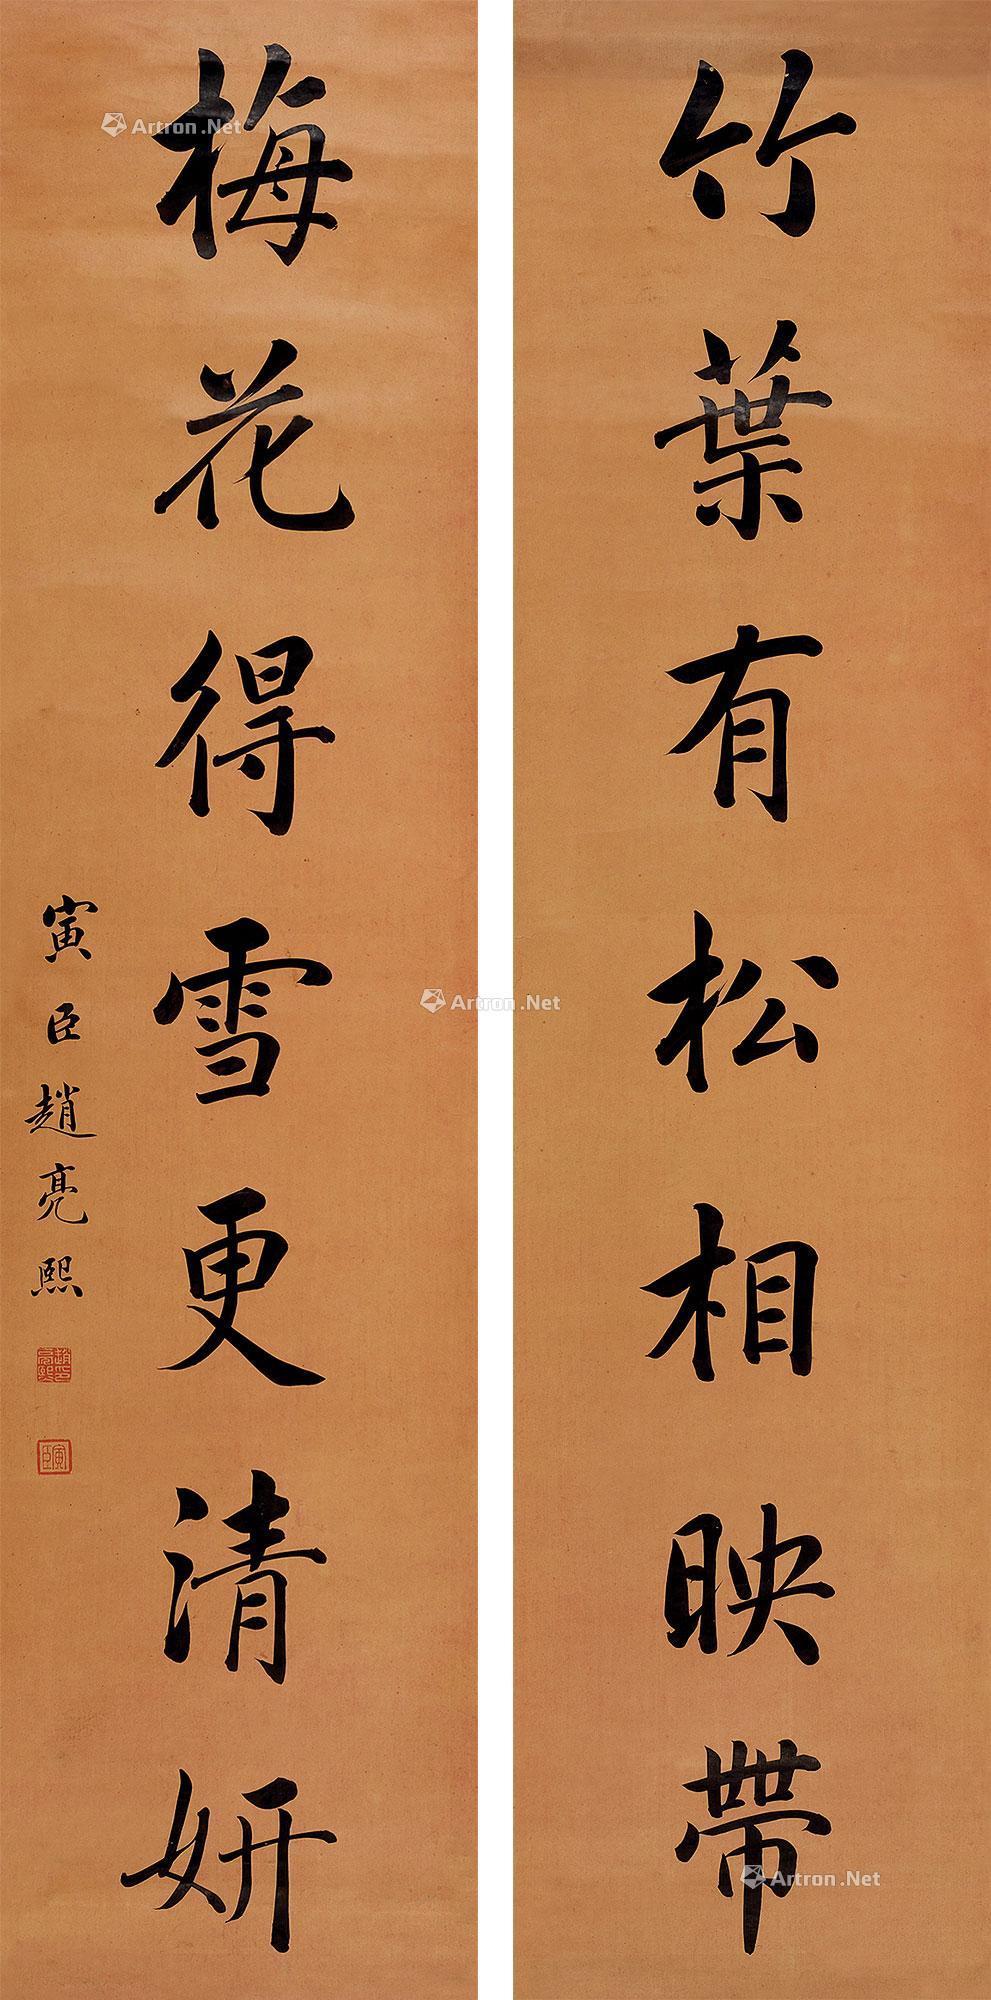 竹葉有松相映帶
梅花得雪更清妍
寅臣趙亮熙
趙亮熙印
寅臣
Artron.Net
Artron.Net
Artron.Net